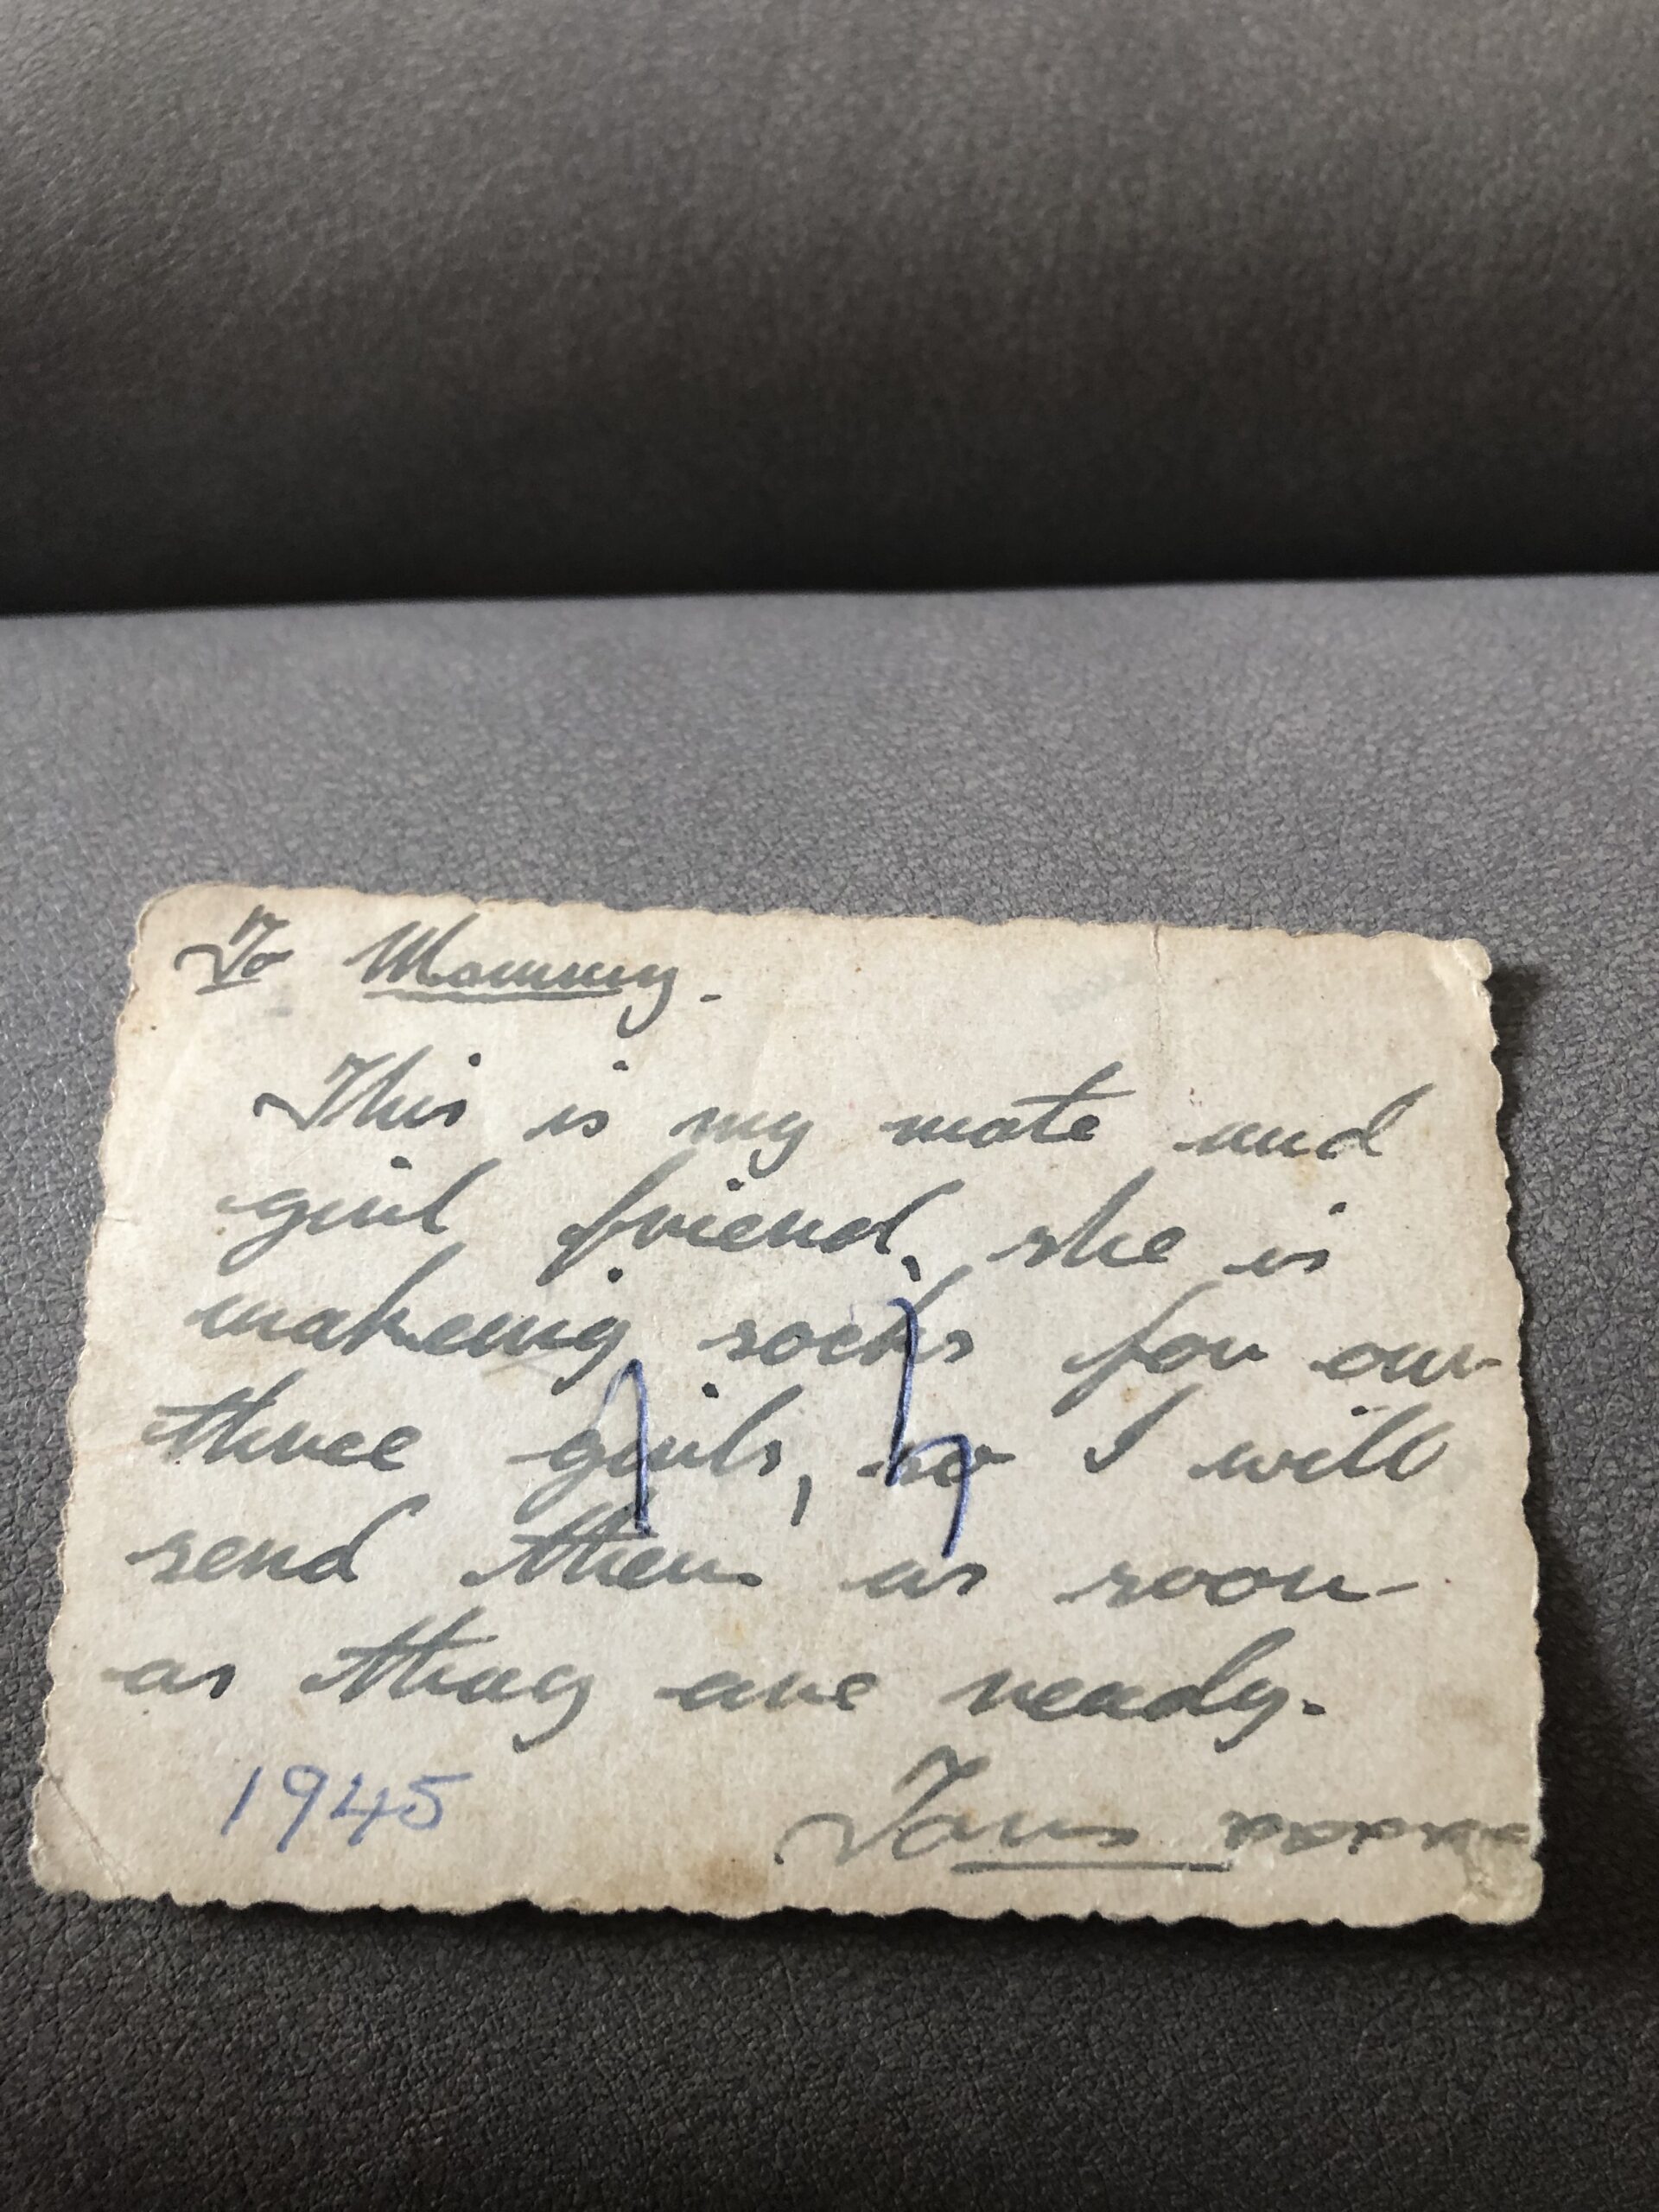 To Mommy.
This is my mate and
girl friend, she is
makeing socks for our
three girls, so I will
send them as soon
as thay are ready.
1945
xxxxxx